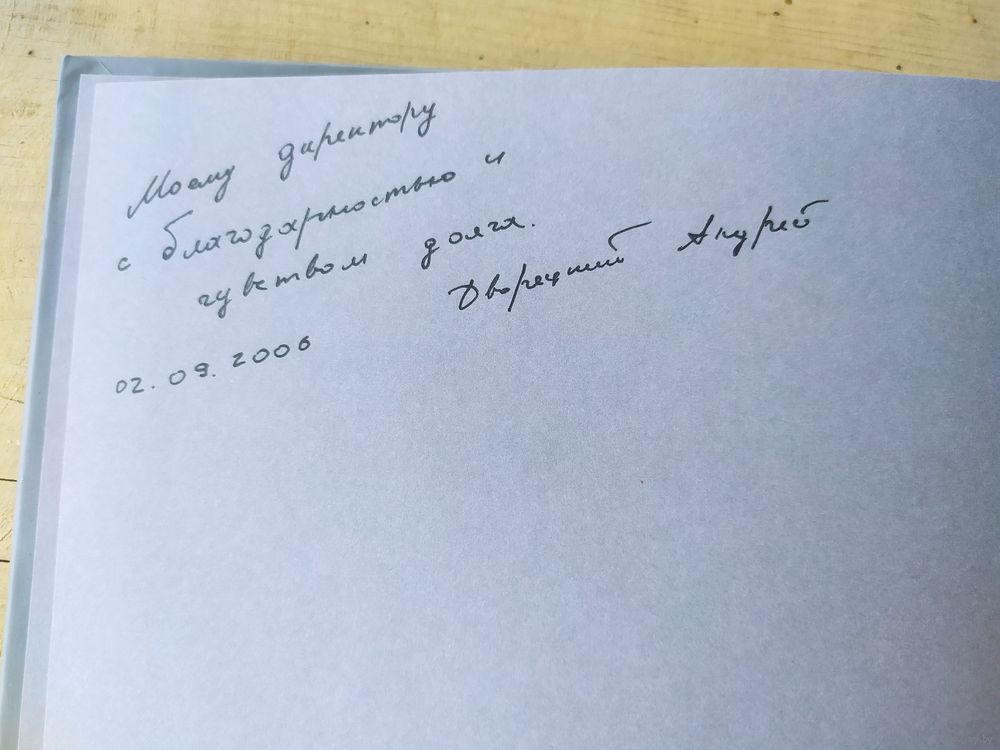 Моему директору
с благодарностью и
чувством долга.
Дворецкий Андрей
02.09.2006